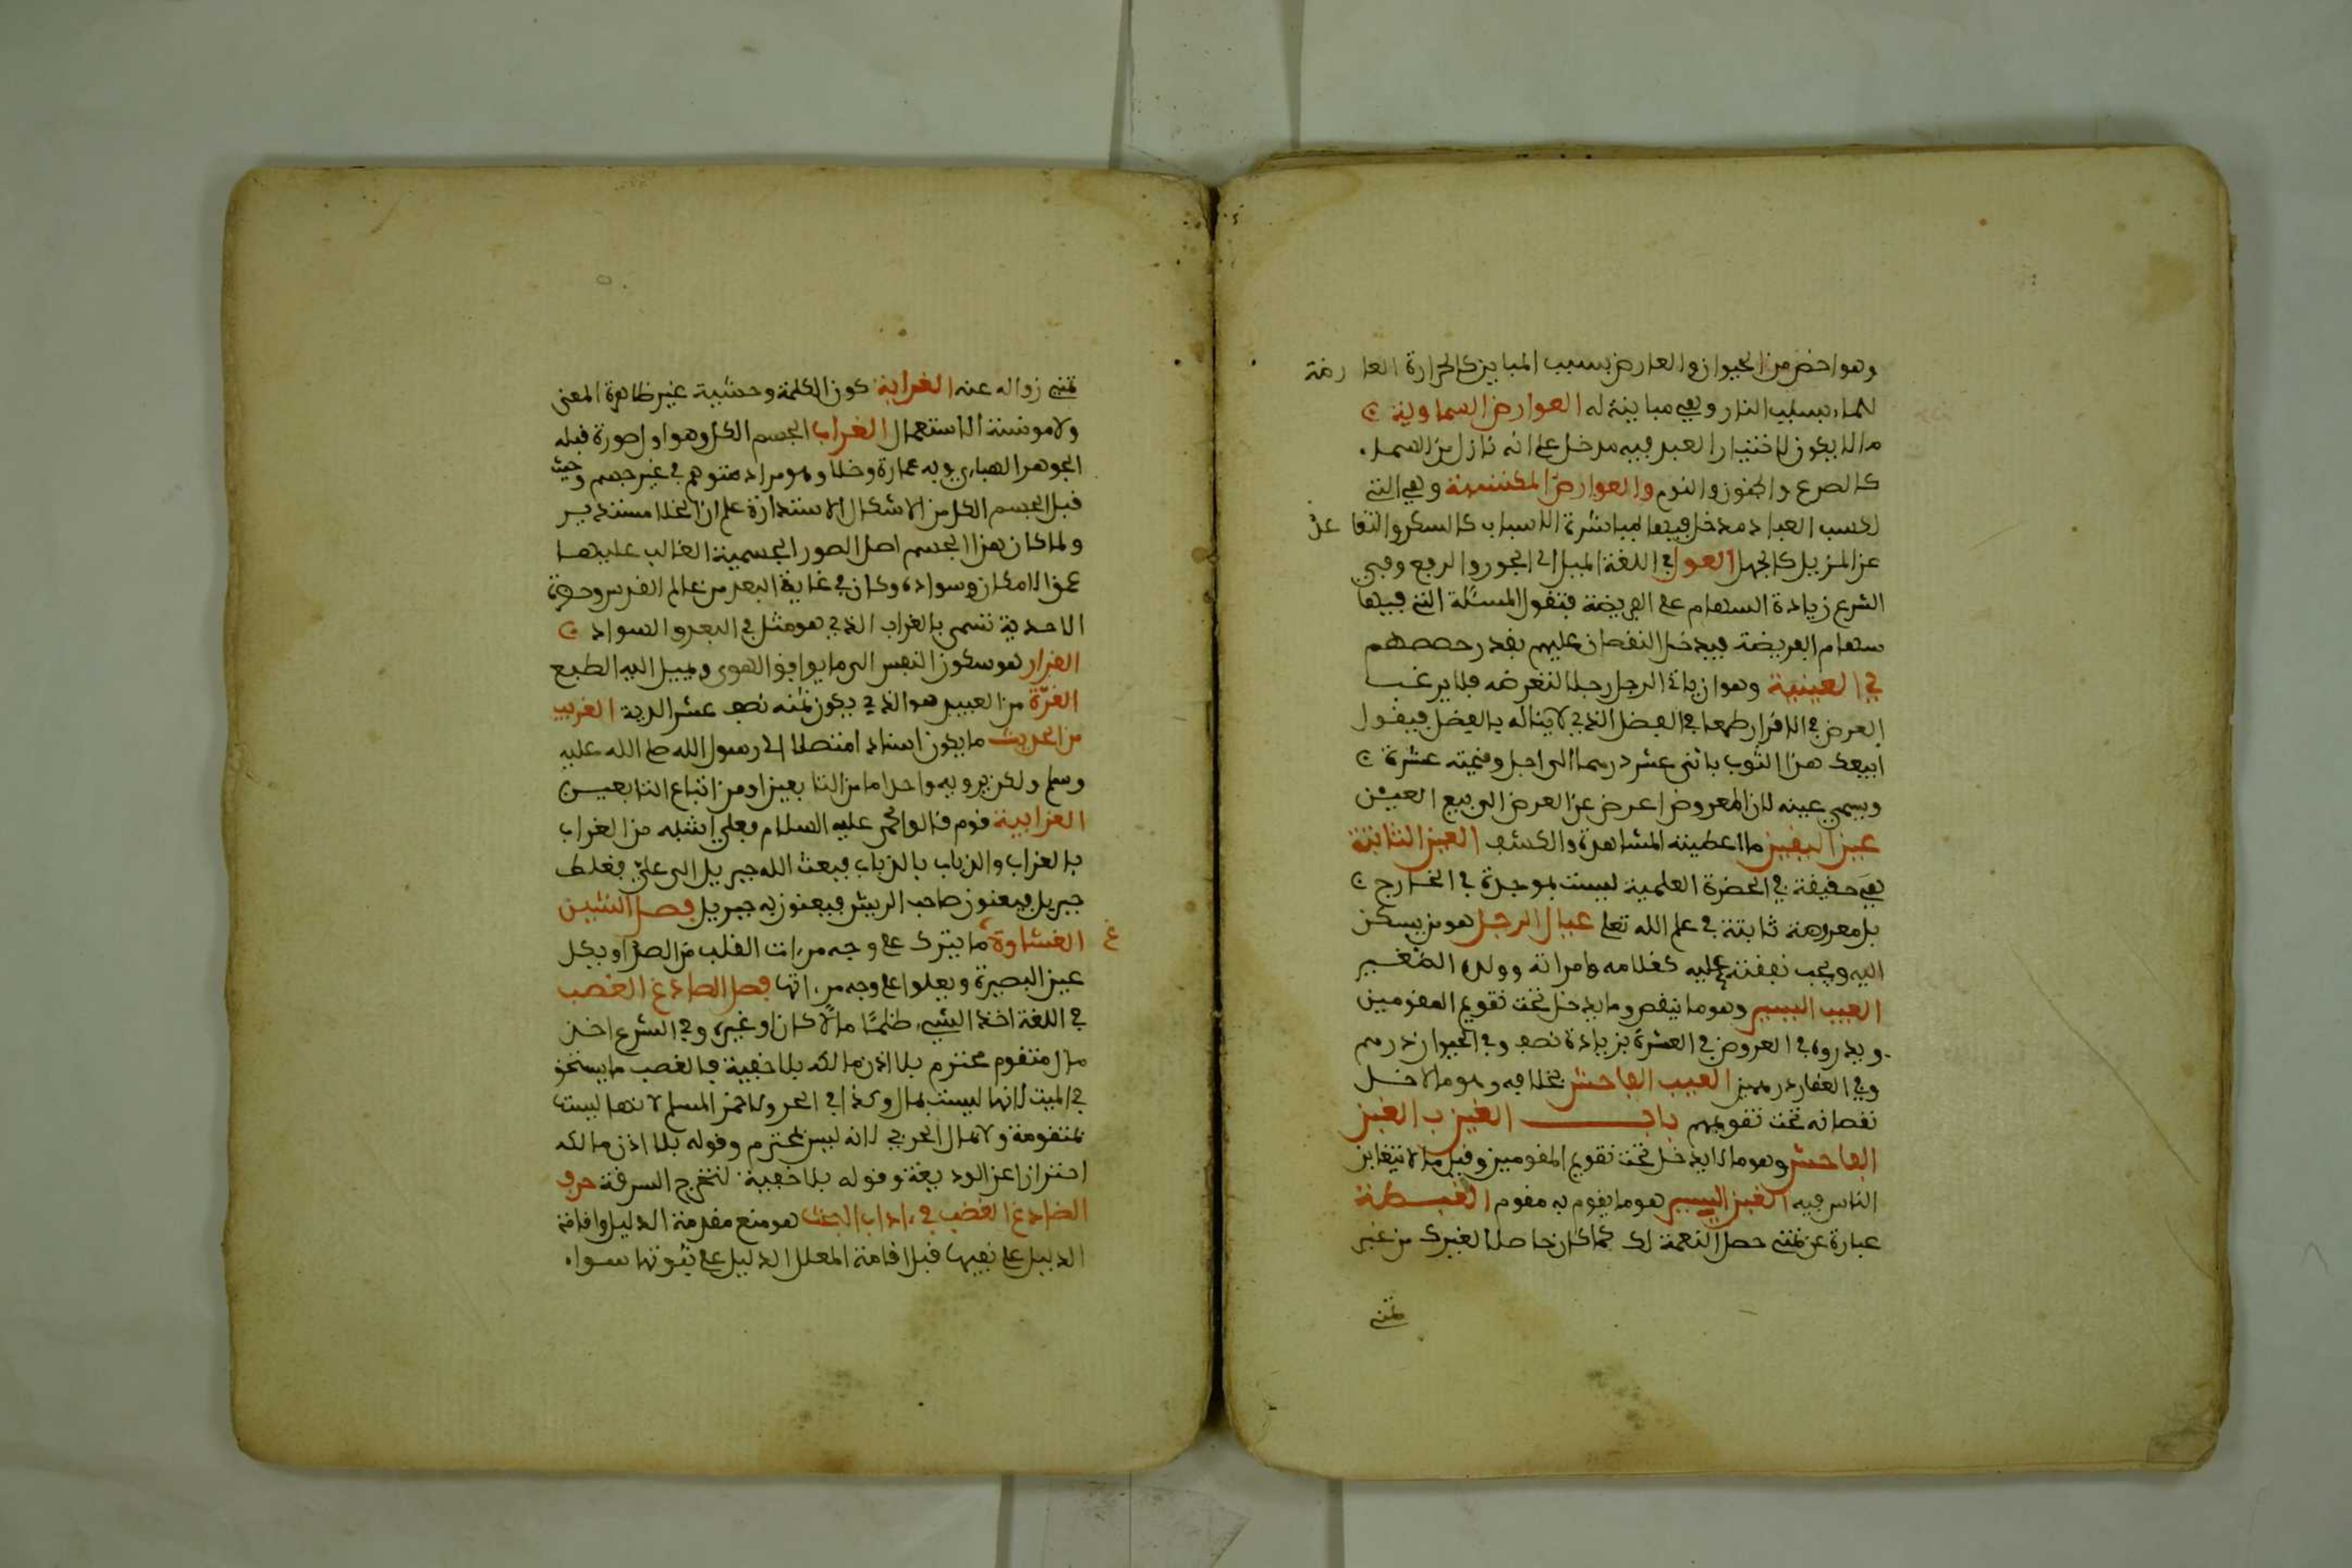 وهو اخص من الحيوان والعارض بسبب المباين كالحرارة العارضة
للماء بسبب النار وهي مباينة له العوارض السماوية
ما لا يكون لاختيار العبد فيه مدخل على انه نازل من السماء
كالصرع والجنون والنوم والعوارض المكتسبة وهي التي
لكسب العباد مدخل فيها لمباشرة الاسباب كالسكر والتقاعد
عن المزيل كالجهل العول في اللغة الميل الى الجور والرفع وفي
الشرع زيادة السهام على الفريضة فتعول المسئلة التي فيها
سهام الفريضة فيدخل النقصان عليهم بقدر حصصهم
في العينية وهو ان ياتي الرجل رجلا لتقرضه فلا يرغب
المقرض في الاقراض طمعا في الفضل الذي لا يناله بالقرض فيقول
ابيعك هذا الثوب باثني عشر درهما الى اجل وقيمته عشرة
ويسمى عينه لان المعروض اعرض عن القرض الى بيع العين
عين اليقين ما اعطيته المشاهدة والكشف العين الثابتة
هي حقيقة في الحضرة العلمية ليست بموجدة في الخارج
بل معدومة ثابتة في علم الله تعلى عيال الرجل هو من يسكن
اليه ويجب نفقته عليه كغلامه وامراته وولده الصغير
العيب اليسير وهو ما ينقص وما يدخل تحت تقويم المقومين
وبدروه في العروض في العشرة بزيادة نصف وفي الحيوان درهم
وفي العقار درهمين العيب الفاحش بخلافه وهو ما لا دخل
نقصانه تحت تقويمهم باب الغين ب الغبن
الفاحش وهو ما لا يدخل تحت تقويم المقومين وقيل ما لا يتغابن
الناس فيه الغبن اليسير هو ما يقوم به مقوم الغبطة
عبارة عن تمني حصل النعمة لك كما كان حاصلا لغيرك من غير
تمني
تمني زواله عنه الغرابة كون الكلمة وحشية غير ظاهرة المعنى
ولا مونسة الاستعمال الغراب الجسم الكل وهو اول صورة قبله
الجوهر الهباءي وبه عمارة وخلا وهو مراد متوهم في غير جسم وحيث
قبل الجسم الكل من الاشكال الاستدارة علم ان الخلا مستدير
ولما كان هذا الجسم اصل الصور الجسمية الغالب عليها
غسق الامكان وسواده وكان في غاية البعد من عالم القدس وحضرة
الاحدية تسمى بالغراب الذي هو مثل في البعد والسواد
الغرار هو سكون النفس الى ما يوافق الهوى ويميل اليه الطبع
الغرة من العبيد هو الذي يكون ثمنه نصف عشر الدية الغريب
من الحديث ما يكون اسناده متصلا الى رسول الله صلى الله عليه
وسلم ولكن يرويه واحد اما من التابعين او من اتباع التابعين
الغرابية قوم قالوا محمد عليه السلام بعلي اشبه من الغراب
بالغراب والذباب بالذباب فبعث الله جبريل الى علي فغلط
جبريل فيعنون صاحب الريش فيعنون به جبريل فصل الشين
الغشاوة ما يترك على وجه مراءت القلب من الصدا ويكل
عين البصيرة ويعلوا على وجه مراءتها فصل الصاد غ الغصب
في اللغة اخذ الشيء ظلما مالا كان او غيره وفي الشرع اخذ
مال متقوم محترم بلا اذن مالكه بلا خفية فالغصب ما يستحق
في الميت لانها ليست بمال وكذا في الحر ولا خمر المسلم لانها ليست
بمتقومة ولا مال الحربي لانه ليس بمحترم وقوله بلا اذن مالكه
احترازا عن الوديعة وقوله بلا خفية لتخرج السرقة حرف
الضاد غ الغضب في اداب البحث هو منع مقدمة الدليل واقامة
الدليل على نفيها قبل اقامة المعلل الدليل على ثبوتها سواء
غ